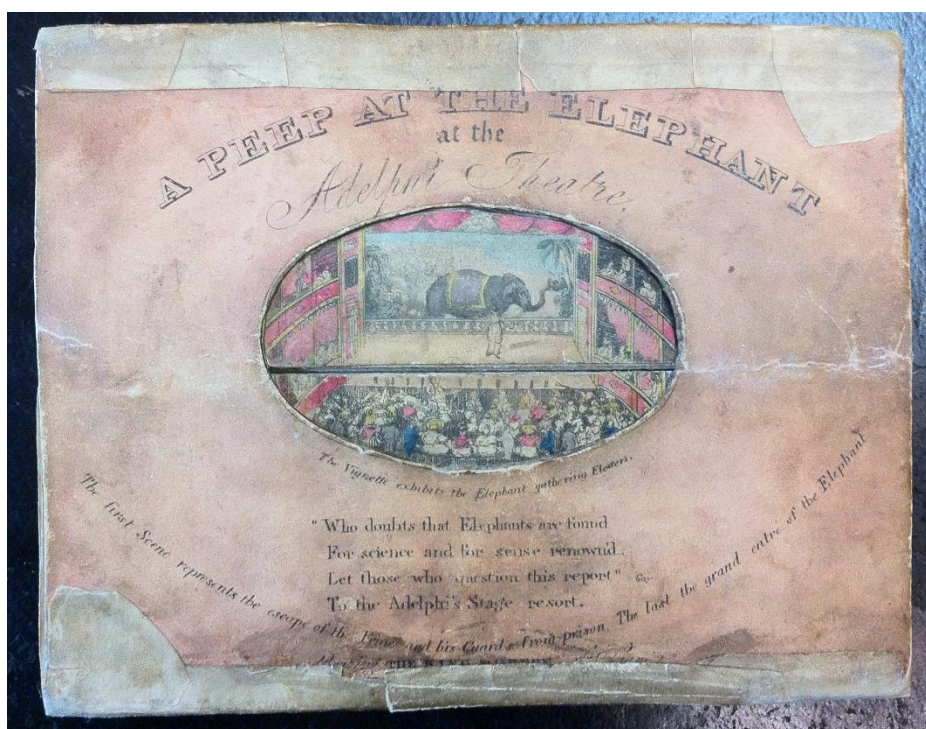 A PEEP AT THE ELEPHANT
at the
Adelphi Theatre,
The Vignette exhibits the Elephant gathering Flowers.
"Who doubts that Elephants are found
For science and for sense renown'd,
Let those who question this report" Gay.
To the Adelphi's Stage resort.
The first Scene represents the escape of the Prince and his Guards from prison, The last the grand entre of the Elephant
THE KING